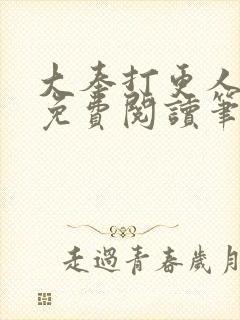 大奉打更人
免費閱讀筆
走過青春歲月